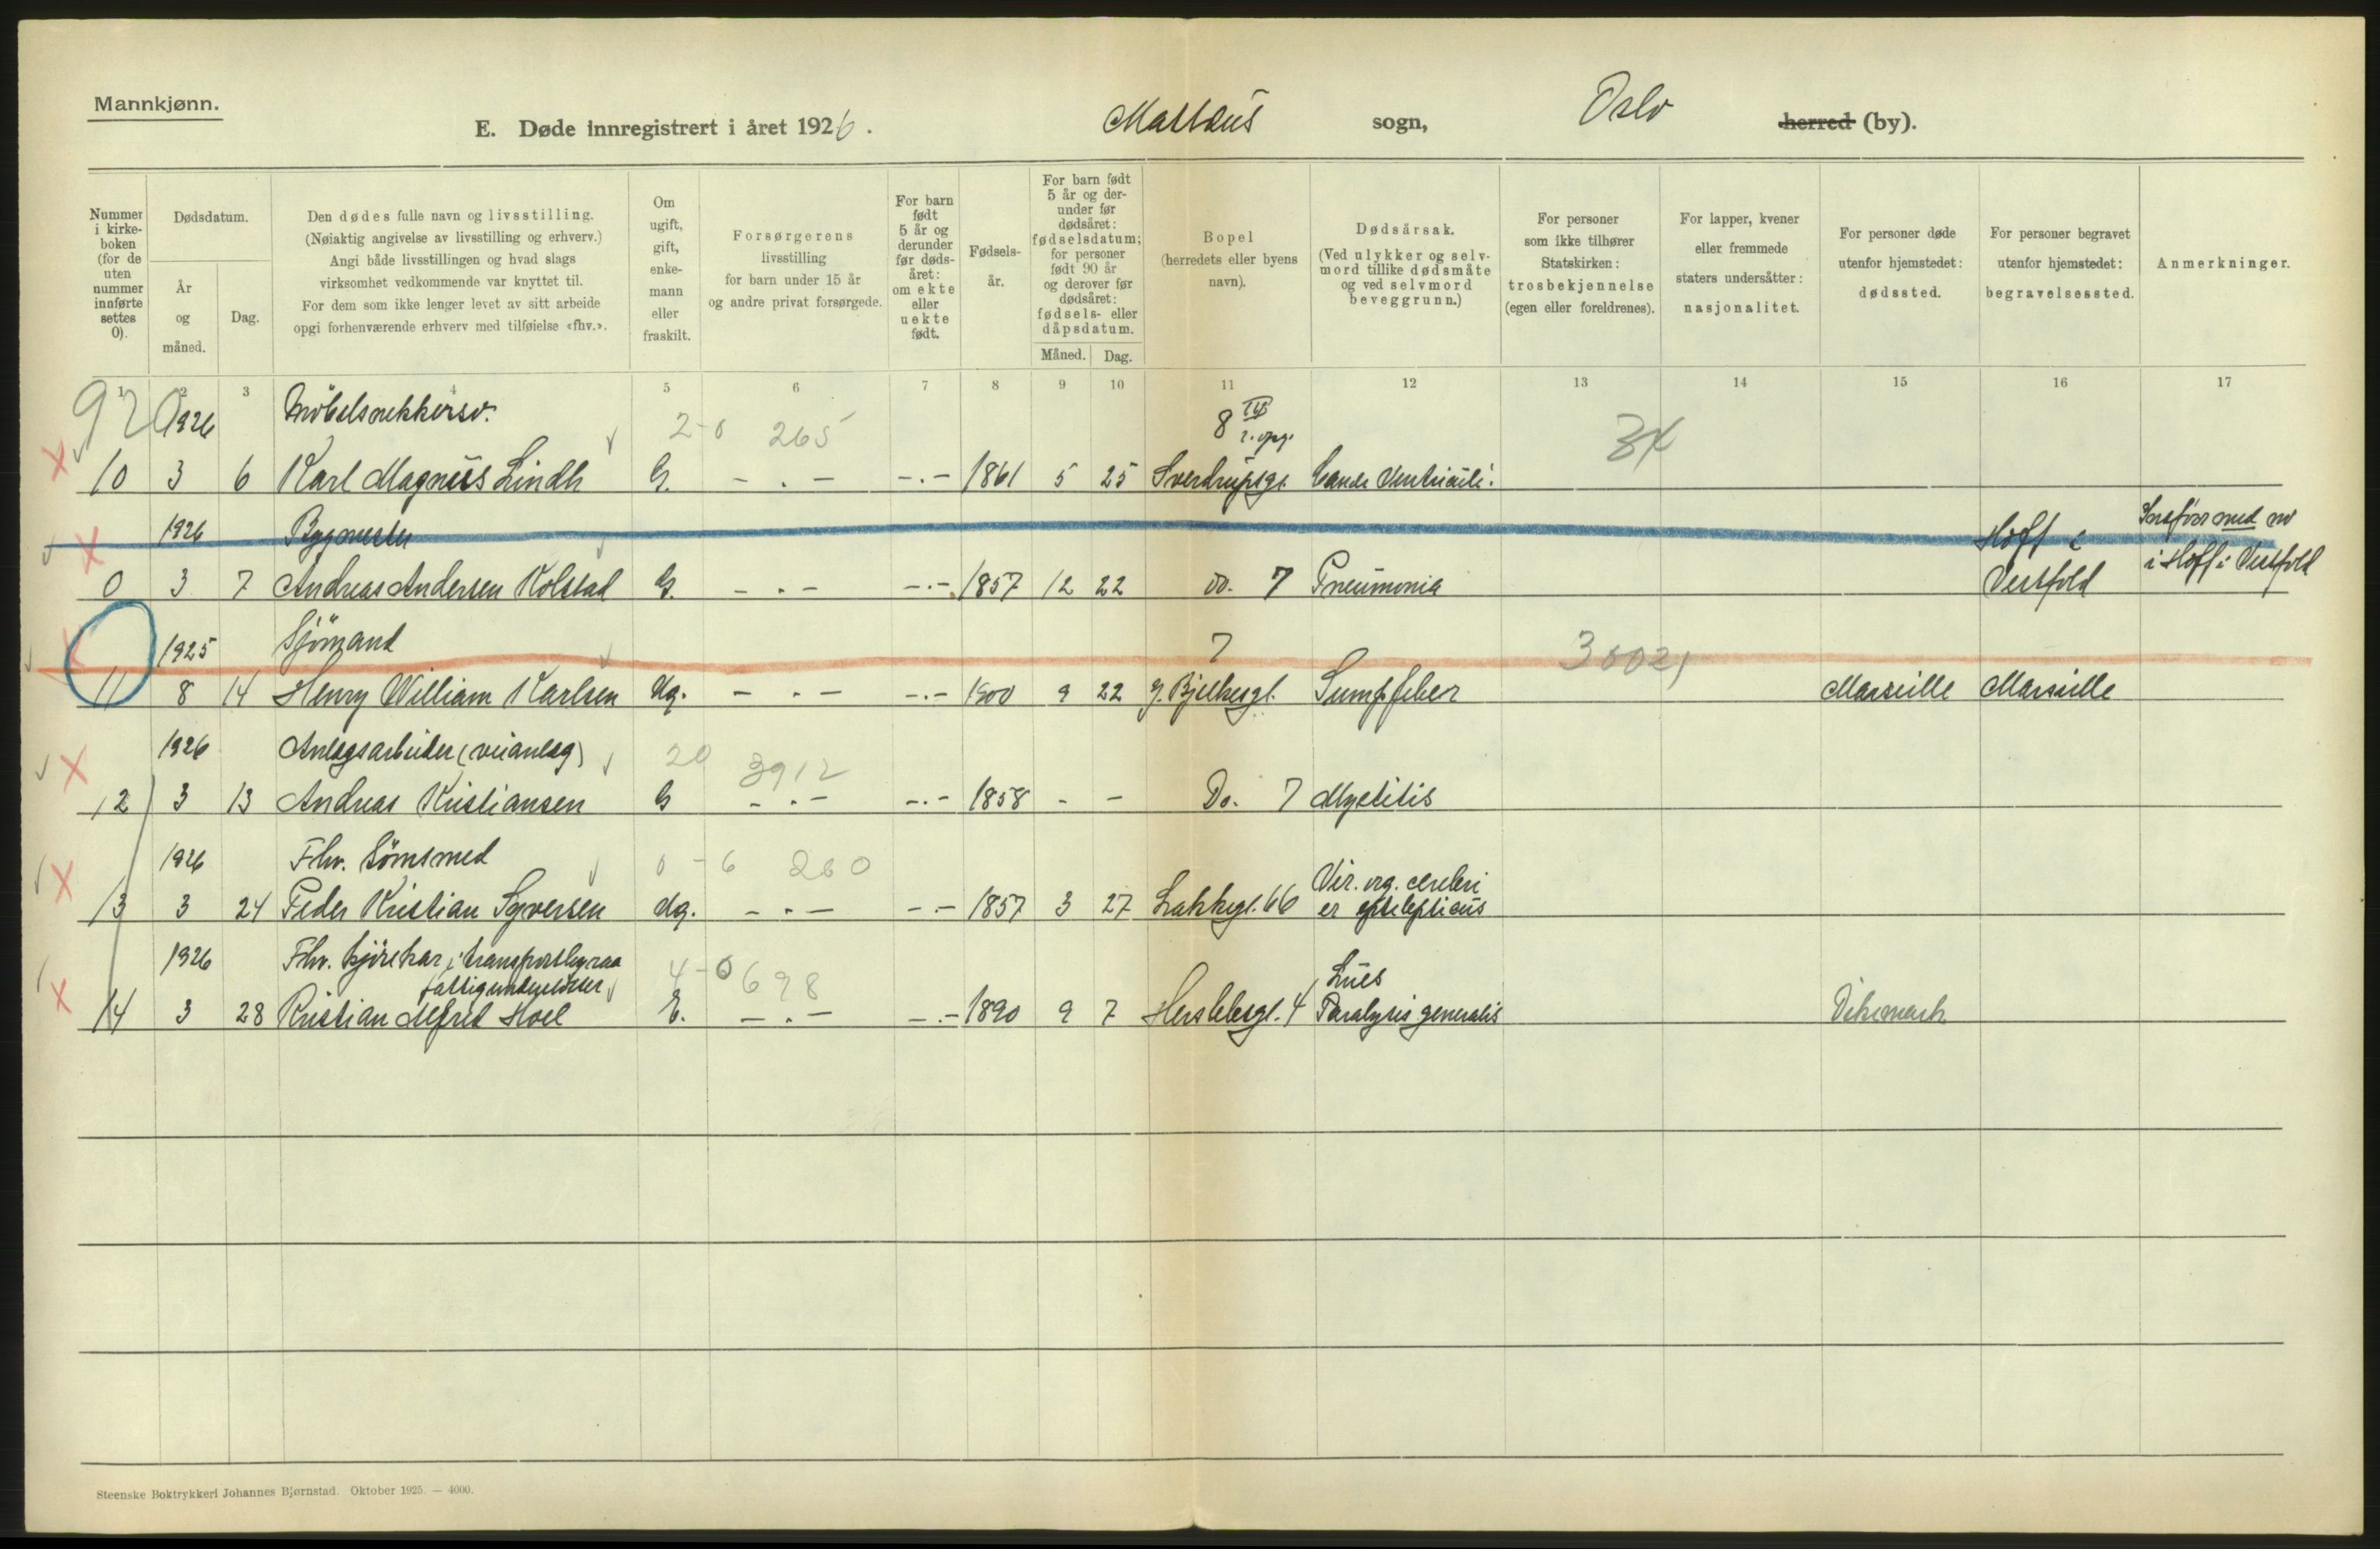 Mannkjønn.
E. Døde innregistrert i året 1926. Mattæus sogn, Oslo herred (by).
Nummer i kirkeboken (for de uten nummer innførte settes 0).
Dødsdatum.
År og måned.
Dag.
Den dødes fulle navn og livsstilling.
(Nøiaktig angivelse av livsstilling og erhverv.)
Angi både livsstillingen og hvad slags
virksomhet vedkommende var knyttet til.
For dem som ikke lenger levet av sitt arbeide
opgi forhenværende erhverv med tilføielse «fhv.».
Om ugift, gift, enkemann eller fraskilt.
Forsørgerens
livsstilling
for barn under 15 år
og andre privat forsørgede.
For barn født 5 år og derunder før dødsåret: om ekte eller uekte født.
Fødselsår.
For barn født 5 år og derunder før dødsåret: fødselsdatum; for personer født 90 år og derover før dødsåret: fødsels- eller dåpsdatum.
Måned. Dag.
Bopel
(herredets eller byens
navn).
Dødsårsak.
(Ved ulykker og selvmord tillike dødsmåte og ved selvmord beveggrunn.)
For personer
som ikke tilhører
Statskirken:
trosbekjennelse
(egen eller foreldrenes).
For lapper, kvener
eller fremmede
staters undersåtter:
nasjonalitet.
For personer døde
utenfor hjemstedet:
dødssted.
For personer begravet
utenfor hjemstedet:
begravelsessted.
Anmerkninger.
1 2 3 4 5 6 7 8 9 10 11 12 13 14 15 16 17
920 1926 Möbelsnekkersv. 2-0 265 8
10 3 6 Karl Magnus Lindh G. - . - - . - 1861 5 25 Sverdrupsgt. Cancer Ventriculi.
1926 Bygmester Hoff i Innført med no
0 3 7 Andreas Andersen Kolstad G. - . - - . - 1857 12 22 Do. 7 Pneumonia Vestfold i Hoff i Vestfold
1925 Sjömand 7
11 8 14 Henry William Karlsen Ug. - . - - . - 1900 9 22 J. Bjelkesgt. Sumpfeber Marseille Marseille
1926 Anlægsarbeider (veianlæg) 20 3912
12 3 13 Andreas Kristiansen G - . - - . - 1858 - - Do. 7 Myelitis
1926 Fhv. Sömsmed 0-6 260
13 3 24 Peder Kristian Syversen Ug. - . - - . - 1857 3 27 Lakkegt. 66 Vit. org. cerebri
et epilepticus
1926 Fhv. kjörekar i transportbyraa 4-0 698 Lues
fattigunderstöttet
14 3 28 Kristian Alfred Hoel E. - . - - . - 1890 9 7 Herslebsgt. 4 Paralysis generalis Dikemark
Steenske Boktrykkeri Johannes Bjørnstad. Oktober 1925. — 4000.